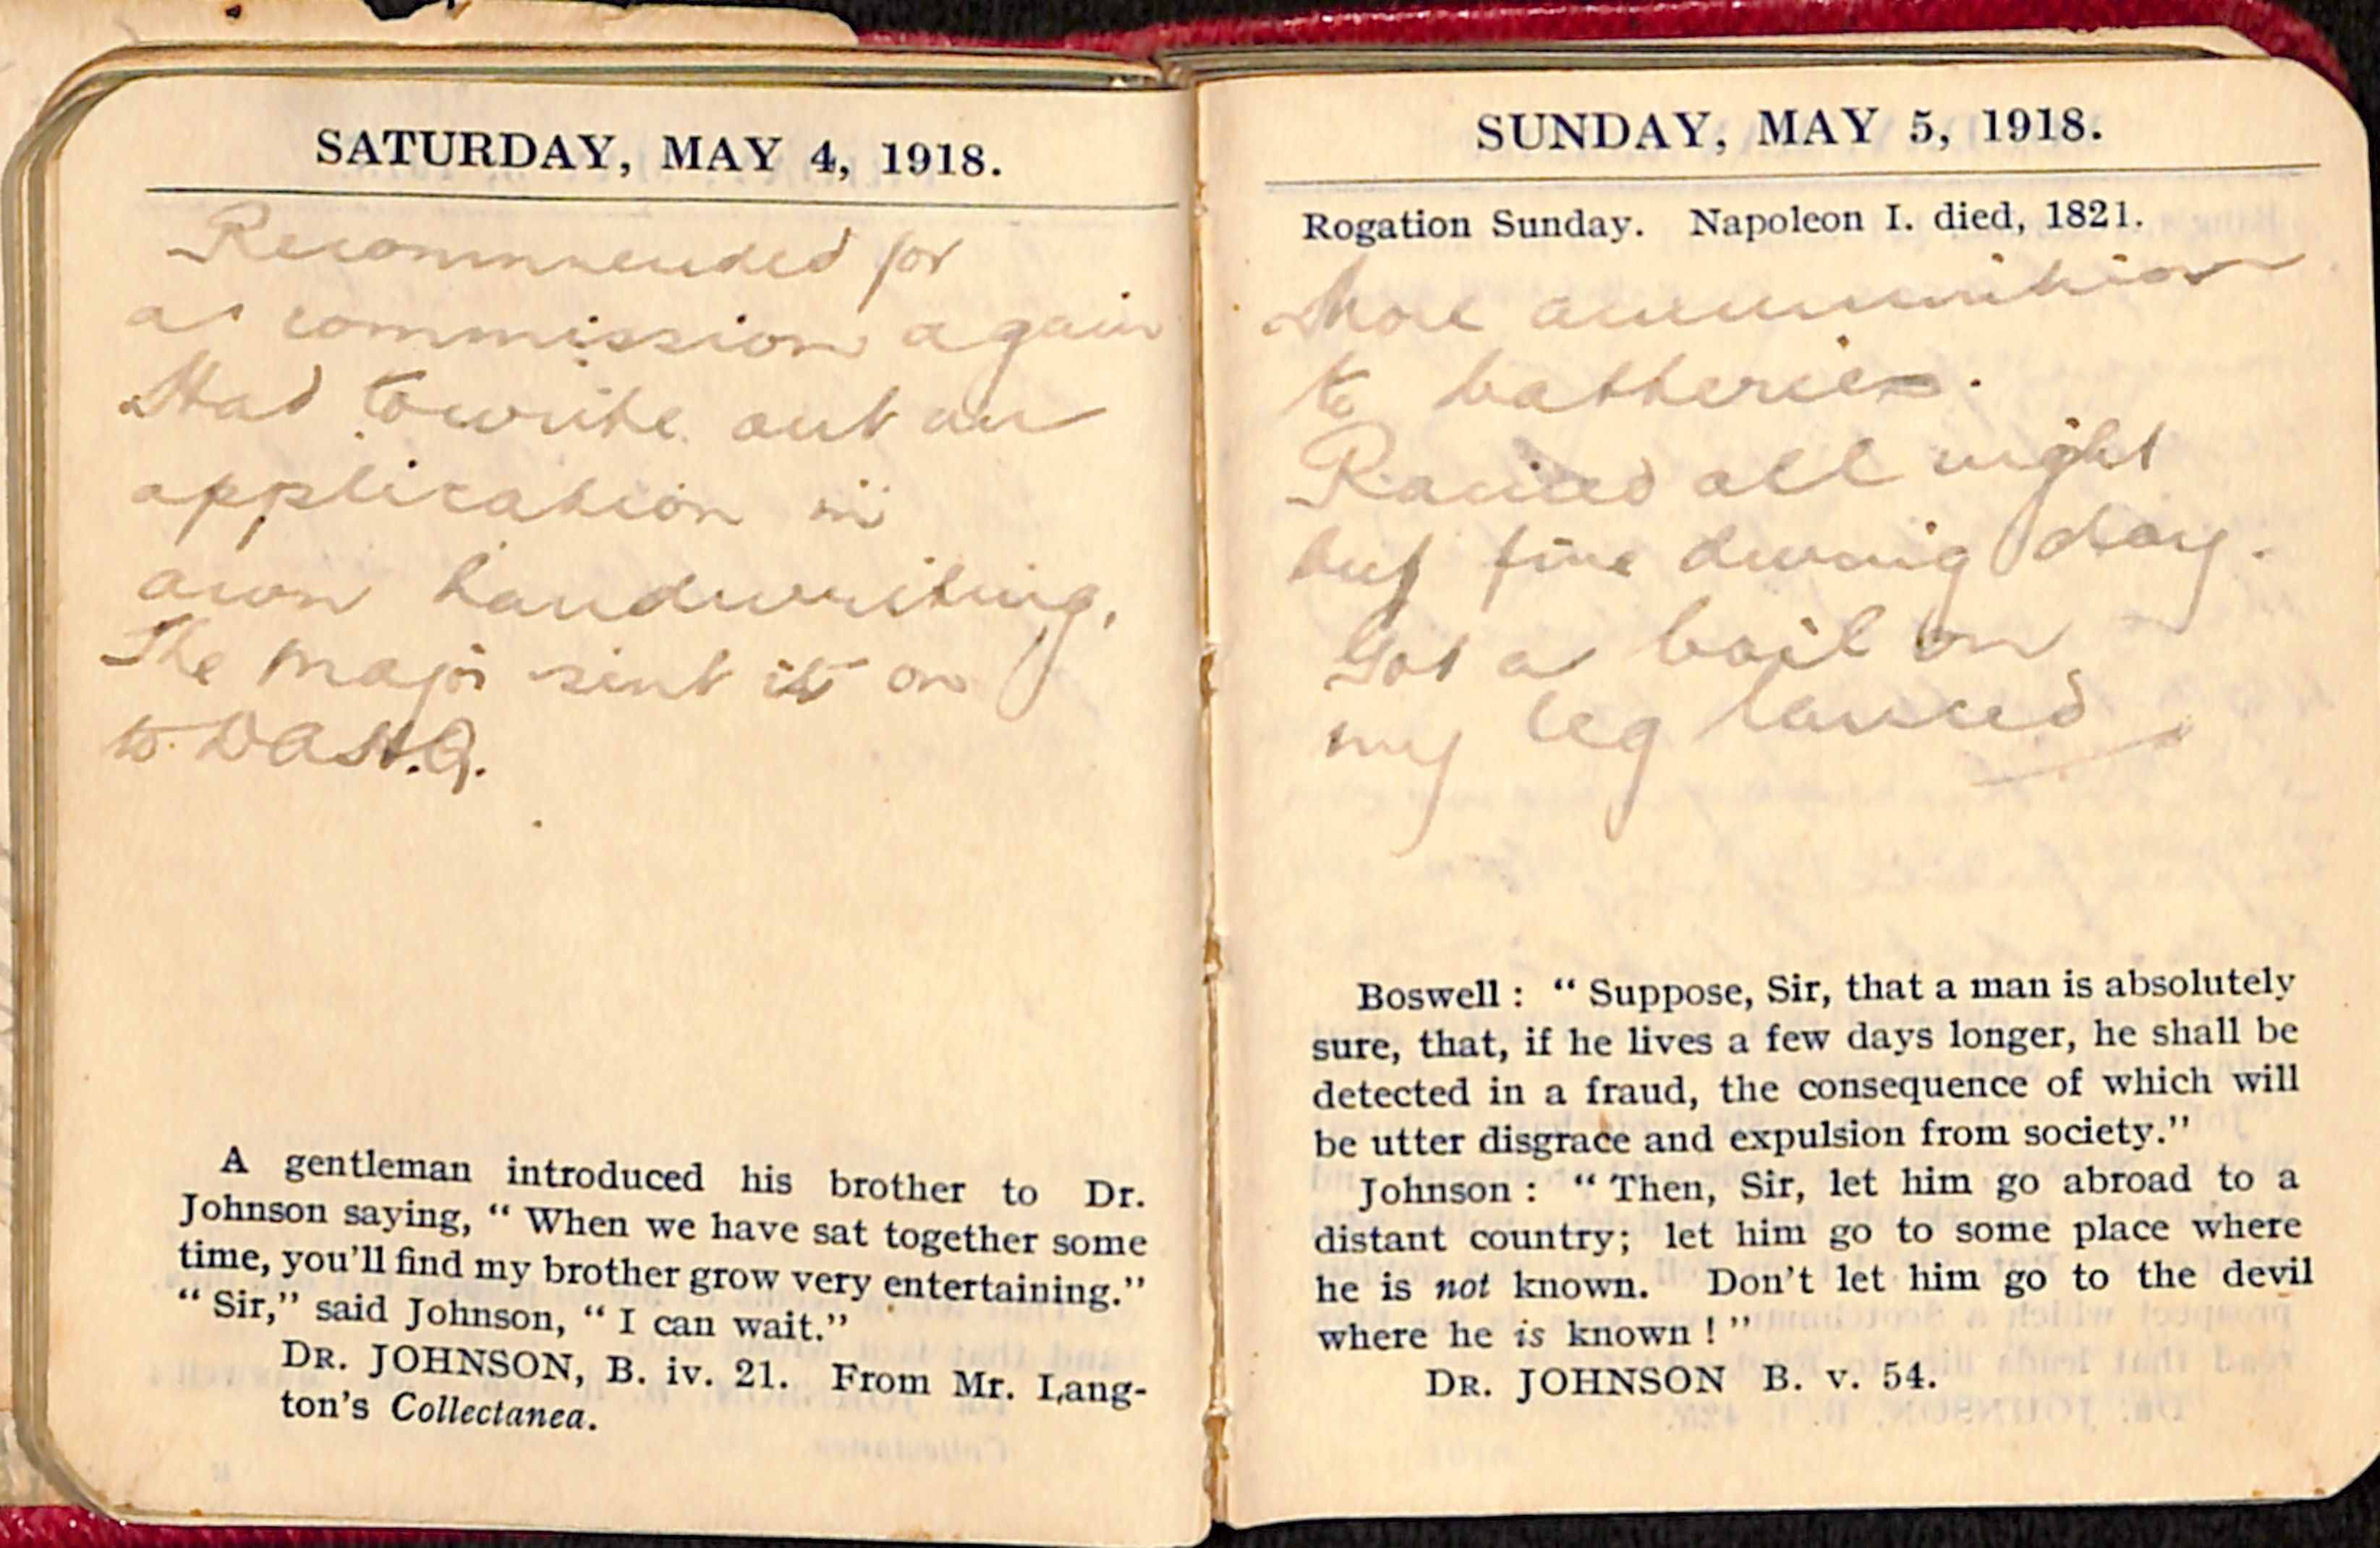 SATURDAY, MAY 4, 1918.
Recommended for
a commission again
Had to write out an
application in
own handwriting.
The Major sent it on
to DAH.Q.
A gentleman introduced his brother to Dr.
Johnson saying, “ When we have sat together some
time, you'll find my brother grow very entertaining.”
“ Sir,” said Johnson, “ I can wait.”
DR. JOHNSON, B. iv. 21. From Mr. Lang-
ton's Collectanea.
SUNDAY, MAY 5, 1918.
Rogation Sunday. Napoleon I. died, 1821.
More ammunition
to batteries.
Rained all night
but fine during day.
Got a boil on
my leg lanced
Boswell : “ Suppose, Sir, that a man is absolutely
sure, that, if he lives a few days longer, he shall be
detected in a fraud, the consequence of which will
be utter disgrace and expulsion from society.”
Johnson : “ Then, Sir, let him go abroad to a
distant country; let him go to some place where
he is not known. Don't let him go to the devil
where he is known ! ”
DR. JOHNSON B. v. 54.